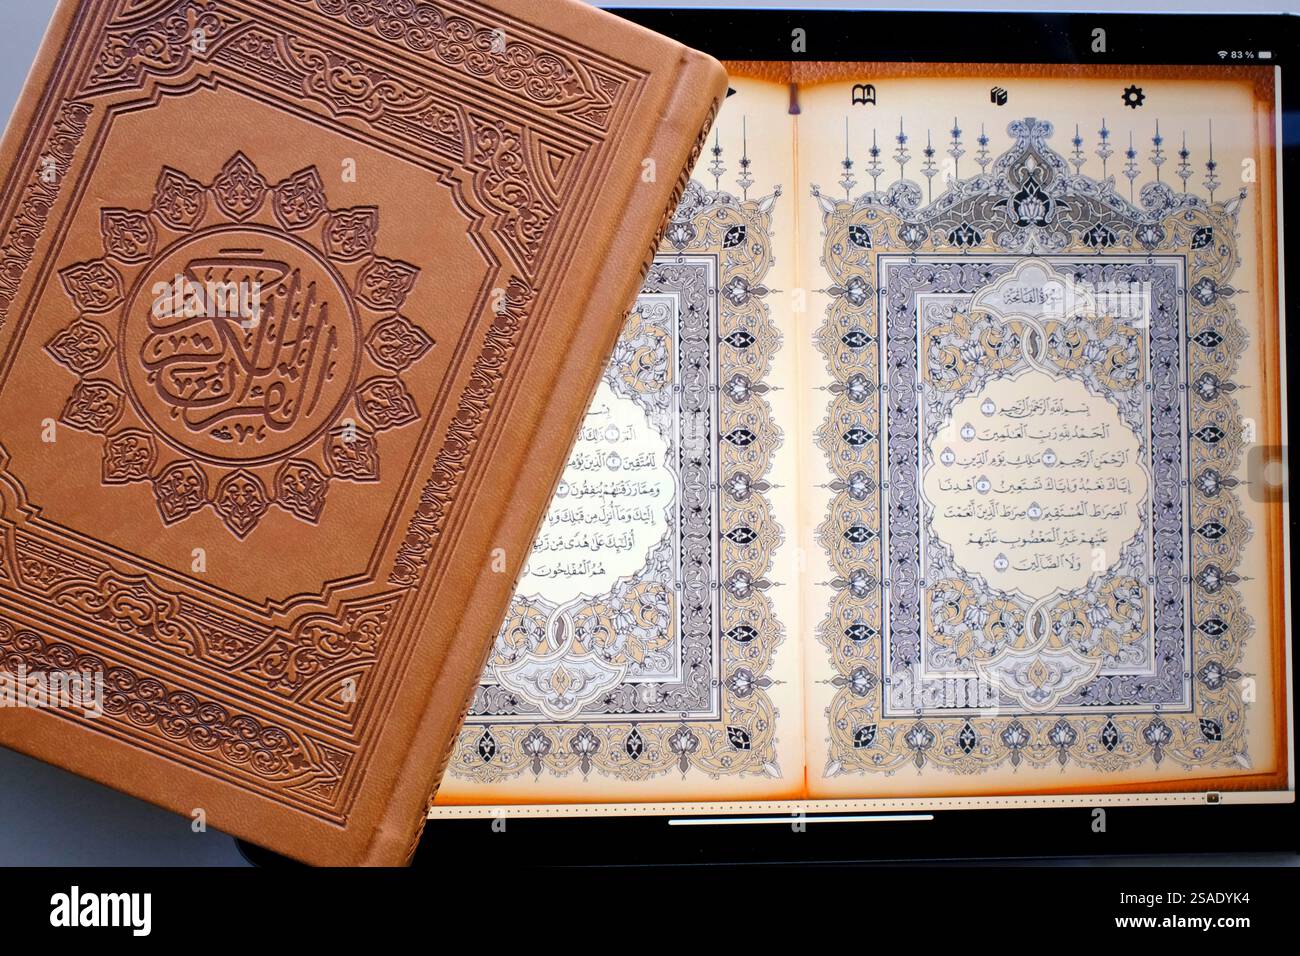 القرآن الكريم
83 %
سورة الفاتحة
بِسْمِ ٱللَّهِ ٱلرَّحْمَٰنِ ٱلرَّحِيمِ ١
ٱلْحَمْدُ لِلَّهِ رَبِّ ٱلْعَٰلَمِينَ ٢
ٱلرَّحْمَٰنِ ٱلرَّحِيمِ ٣ مَٰلِكِ يَوْمِ ٱلدِّينِ ٤
إِيَّاكَ نَعْبُدُ وَإِيَّاكَ نَسْتَعِينُ ٥ ٱهْدِنَا
ٱلصِّرَٰطَ ٱلْمُسْتَقِيمَ ٦ صِرَٰطَ ٱلَّذِينَ أَنْعَمْتَ
عَلَيْهِمْ غَيْرِ ٱلْمَغْضُوبِ عَلَيْهِمْ
وَلَا ٱلضَّآلِّينَ ٧
بِسْمِ
الٓمٓ ١ ذَٰلِكَ
لِّلْمُتَّقِينَ ٢ ٱلَّذِينَ
وَمِمَّا رَزَقْنَٰهُمْ يُنفِقُونَ ٣
إِلَيْكَ وَمَآ أُنزِلَ مِن قَبْلِكَ
أُو۟لَٰٓئِكَ عَلَىٰ هُدًى مِّن
هُمُ ٱلْمُفْلِحُونَ
alamy
Image ID: 2SADYK4
www.alamy.com